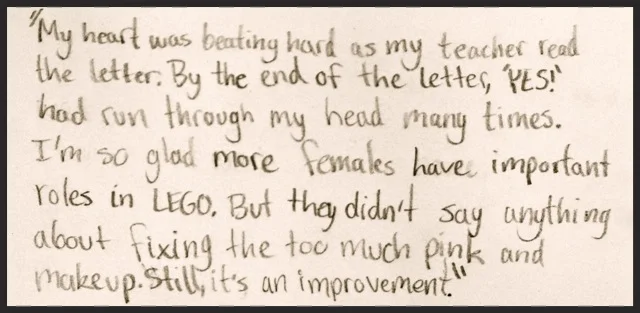 "My heart was beating hard as my teacher read
the letter. By the end of the letter, 'YES!'
had run through my head many times.
I'm so glad more females have important
roles in LEGO. But they didn't say anything
about fixing the too much pink and
makeup. Still, it's an improvement."